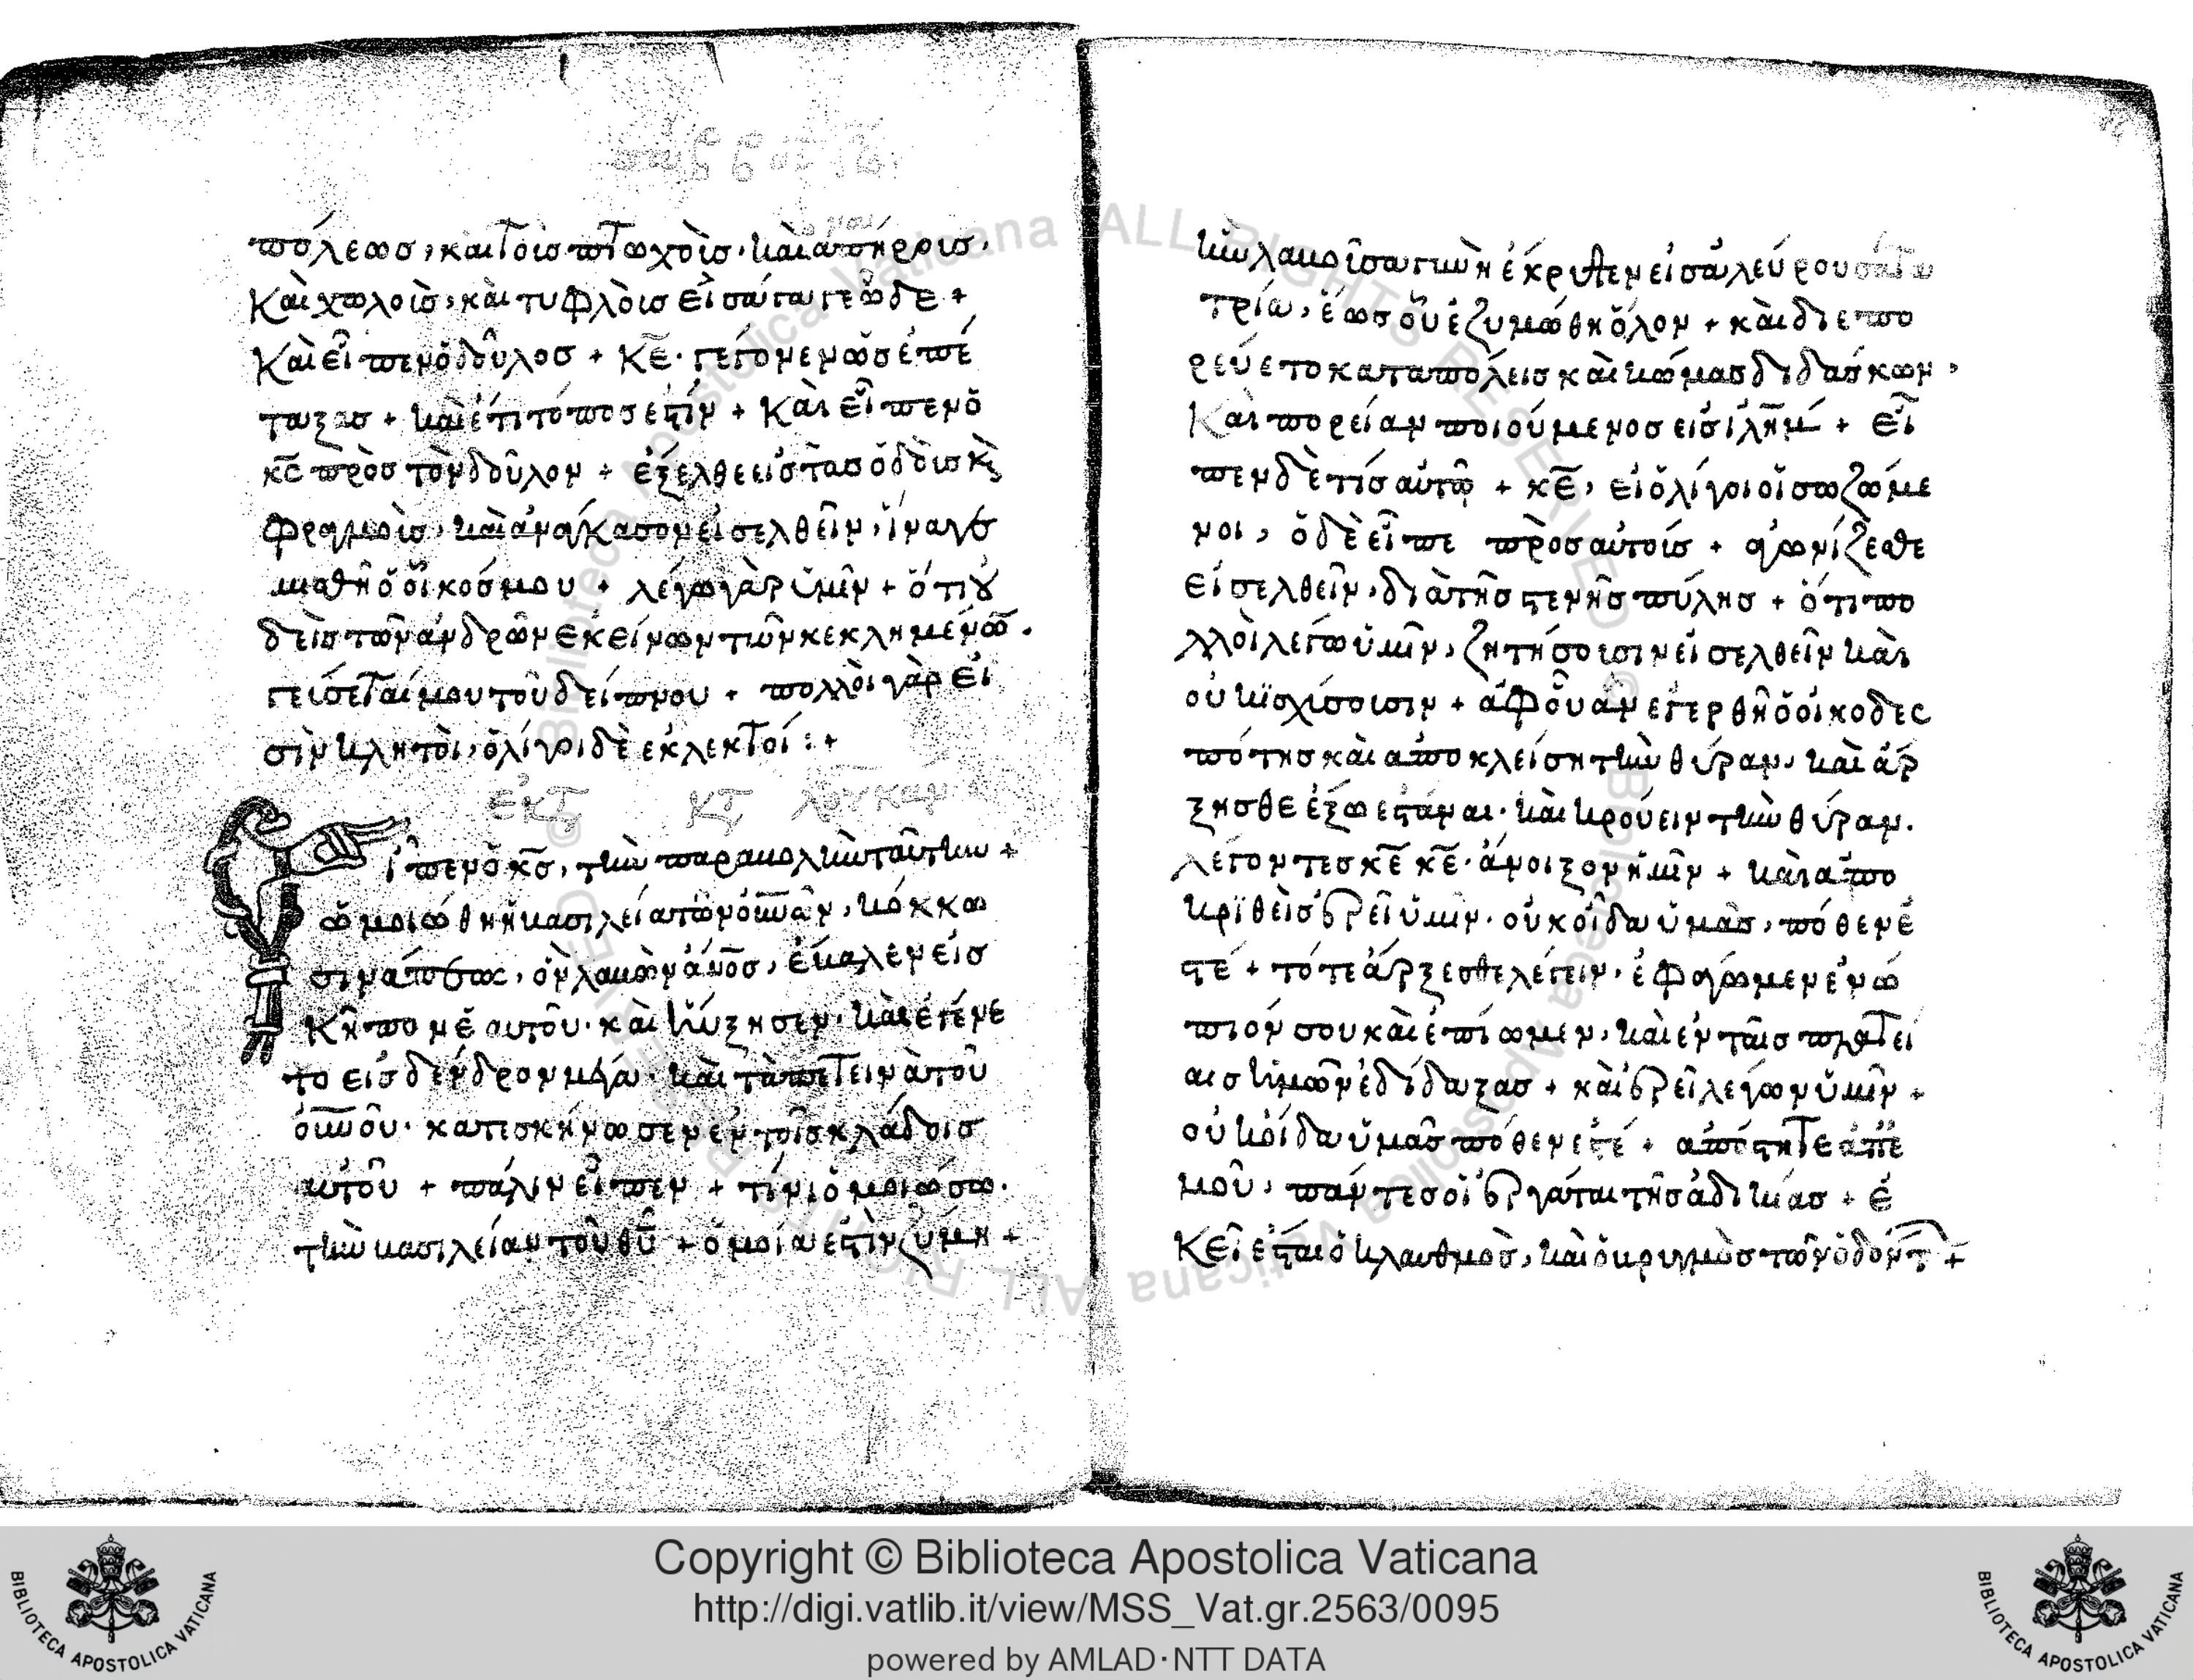 πόλεωσ, καὶ τοὶσ πτωχοὶσ· καὶ απήροισ,
Καὶ χωλοὶσ, κὰι τυφλὸισ εἰσάγαγε ὧδε +
Καὶ εἶπεν ὁ δοῦλοσ + κε̄· γέγονεν ὡσ ἐπέ
ταξασ + καὶ ἔτι τόποσ εστίν + Κὰι εἶπεν ὁ
κσ̄ πρὸσ τὸν δοῦλον + ἐξελθε εισ τασ ὁδὸισ κ̀
φραγμοὶσ, καὶ ἀνάγκασον εἰσελθεῖν, ἵνα γε
μισθῆ ὁ οἶκοσ μου + λέγω γὰρ ὑμῖν + ὅτι ȣ
δεὶσ τῶν ἀνδρῶν εκείνων τῶν κεκλημένω̄.
γεύσεταί μου τοῦ δείπνου + πολλὸι γάρ ἐι
σὶν κλητὸι, ὀλίγοι δὲ εκλεκτοί : +
ἶπεν ὁ κσ̄, τὴν παραβολὴν ταῦτην +
ὡμοιώθη ἡ βασιλεία τῶν ὀυ̅ν̅ῶν, κόκκω
σινάπεωσ, ὁν λαβὼν ἄνο̅σ, ἔβαλεν εἰσ
Κῆπον ἑαυτοῦ· κὰι ηὔξησεν· κὰι ἐγένε
το εισ δένδρον μέγα· κὰι τὰ πετεινὰ τοῦ
ὀυ̅ν̅οῦ· κατεσκήνωσεν ἐν τοῖσ κλάδοισ
αυτοῦ + πάλιν εἶπεν + τίνι ὁμοιώσω·
τὴν βασιλείαν τοῦ θῦ + ὁμοία ἐστὶν ζύμη +
ἣν λαβοῖσα γυνὴ ἐκρυψεν εἰσ ἀλεύρου σάτα
τρία, ἕωσ οὗ ἐζυμώθη ὅλον + κὰι διεπο
ρεύετο κατα πόλεισ κὰι κώμασ διδάσκων,
Καὶ πορείαν ποιούμενοσ εισ ἱλη̅μ + εἶ
πεν δὲ τίσ αὐτῷ + κε̄, εἰ ὀλίγοι οἱ σωζόμε
νοι, ὁ δὲ εἶπε πρὸσ αὐτοίσ + ἀγωνίζεσθε
εἰσελθεῖν, διὰ τῆσ στενῆσ πύλησ + ὅτι πο
λλὸι λέγω ὑμῖν, ζητήσοισιν εἰσελθεῖν κὰι
οὐκ ἰσχίσοισιν + ἀφ οὗ ἀν εγερθῆ ὁ οἰκοδεσ
πότησ κὰι αποκλείση τὴν θύραν, κὰι ἀρ
ξησθε ἐξω εστάναι· κὰι κρούειν τὴν θύραν.
λέγοντεσ κε̄ κε̄· ἀνοιξον ἡμῖν + κὰι απο
κριθεὶσ ερεῖ ὑμῖν· οὐκ οἶδα ὑμᾶσ, πόθεν ἐ
στέ + τότε ἀρξεσθε λέγειν, ἐφάγωμεν ἐνώ
πιόν σου κὰι ἐπίωμεν, κὰι ἐν ταῖσ πλατεί
αισ ἡμῶν ἐδίδαξασ + κὰι ερεῖ λέγων ὑμῖν +
οὐκ οίδα ὑμᾶσ πόθεν εστέ + απόστητε ἀπε
μοῦ, πάντεσ οἱ εργάται τῆσ ἀδικίασ + ἐ
Κεῖ εσται ὁ κλαυθμὸσ, κὰι ὁ βρυγμὸσ τῶν ὀδόντ +
Copyright © Biblioteca Apostolica Vaticana
http://digi.vatlib.it/view/MSS_Vat.gr.2563/0095
powered by AMLAD·NTT DATA
BIBLIOTECA APOSTOLICA VATICANA
BIBLIOTECA APOSTOLICA VATICANA